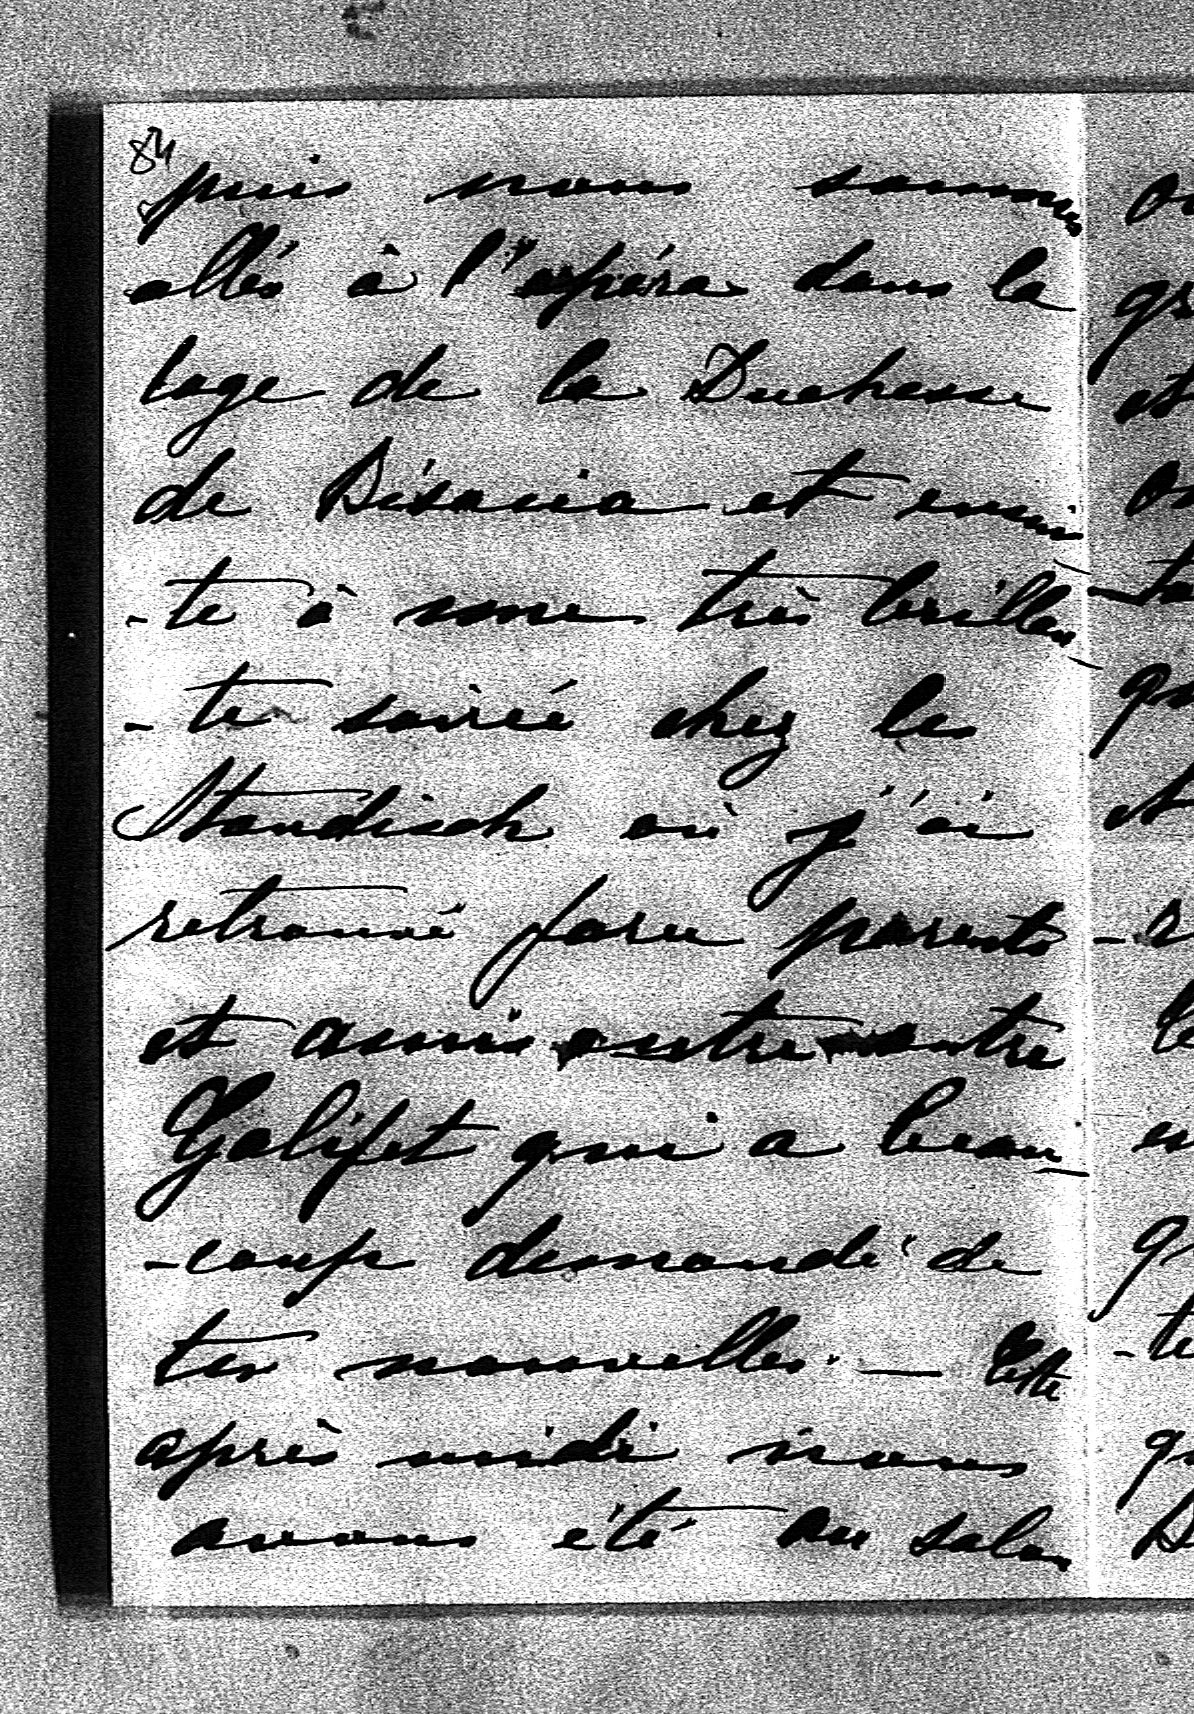 84
puis nous sommes
allés à l'opéra dans la
loge de la Duchesse
de Bisacia et ensui
-te à une très brillan-
-te soirée chez les
Standisch où j'ai
retrouvé force parents
et amis entre autre
Galifet qui a beau-
-coup demandé de
tes nouvelles. — Cette
après midi nous
avons été au salon